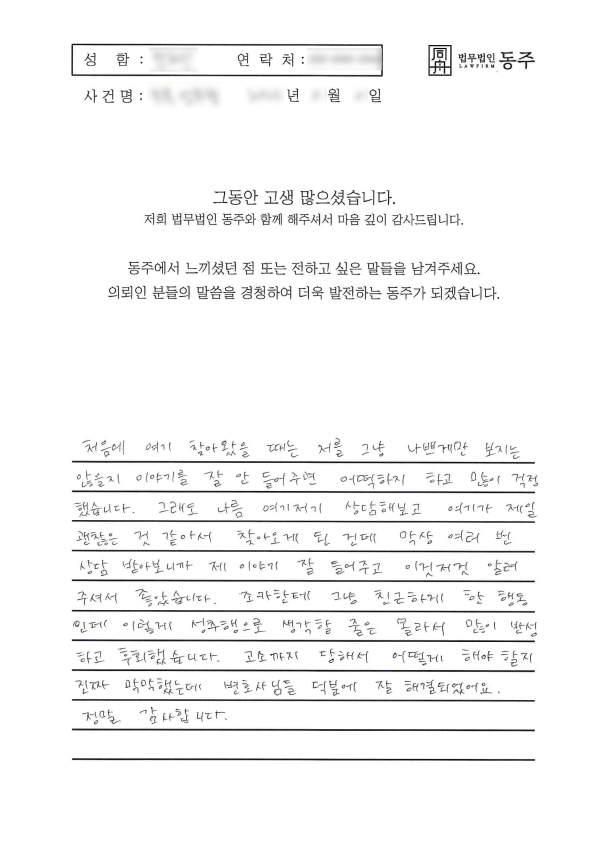 성 함 : 연 락 처 :
同舟 법무법인 LAWFIRM 동주
사건명 : 년 월 일
그동안 고생 많으셨습니다.
저희 법무법인 동주와 함께 해주셔서 마음 깊이 감사드립니다.
동주에서 느끼셨던 점 또는 전하고 싶은 말들을 남겨주세요.
의뢰인 분들의 말씀을 경청하여 더욱 발전하는 동주가 되겠습니다.
처음에 여기 찾아왔을 때는 저를 그냥 나쁘게만 보지는
않을지 이야기를 잘 안 들어주면 어떡하지 하고 많이 걱정
했습니다. 그래도 나름 여기저기 상담해보고 여기가 제일
괜찮은 것 같아서 찾아오게 된 건데 막상 여러 번
상담 받아보니까 제 이야기 잘 들어주고 이것저것 알려
주셔서 좋았습니다. 조카한테 그냥 친근하게 한 행동
인데 이렇게 성추행으로 생각할 줄은 몰라서 많이 반성
하고 후회했습니다. 고소까지 당해서 어떻게 해야 할지
진짜 막막했는데 변호사님들 덕분에 잘 해결되었어요.
정말 감사합니다.